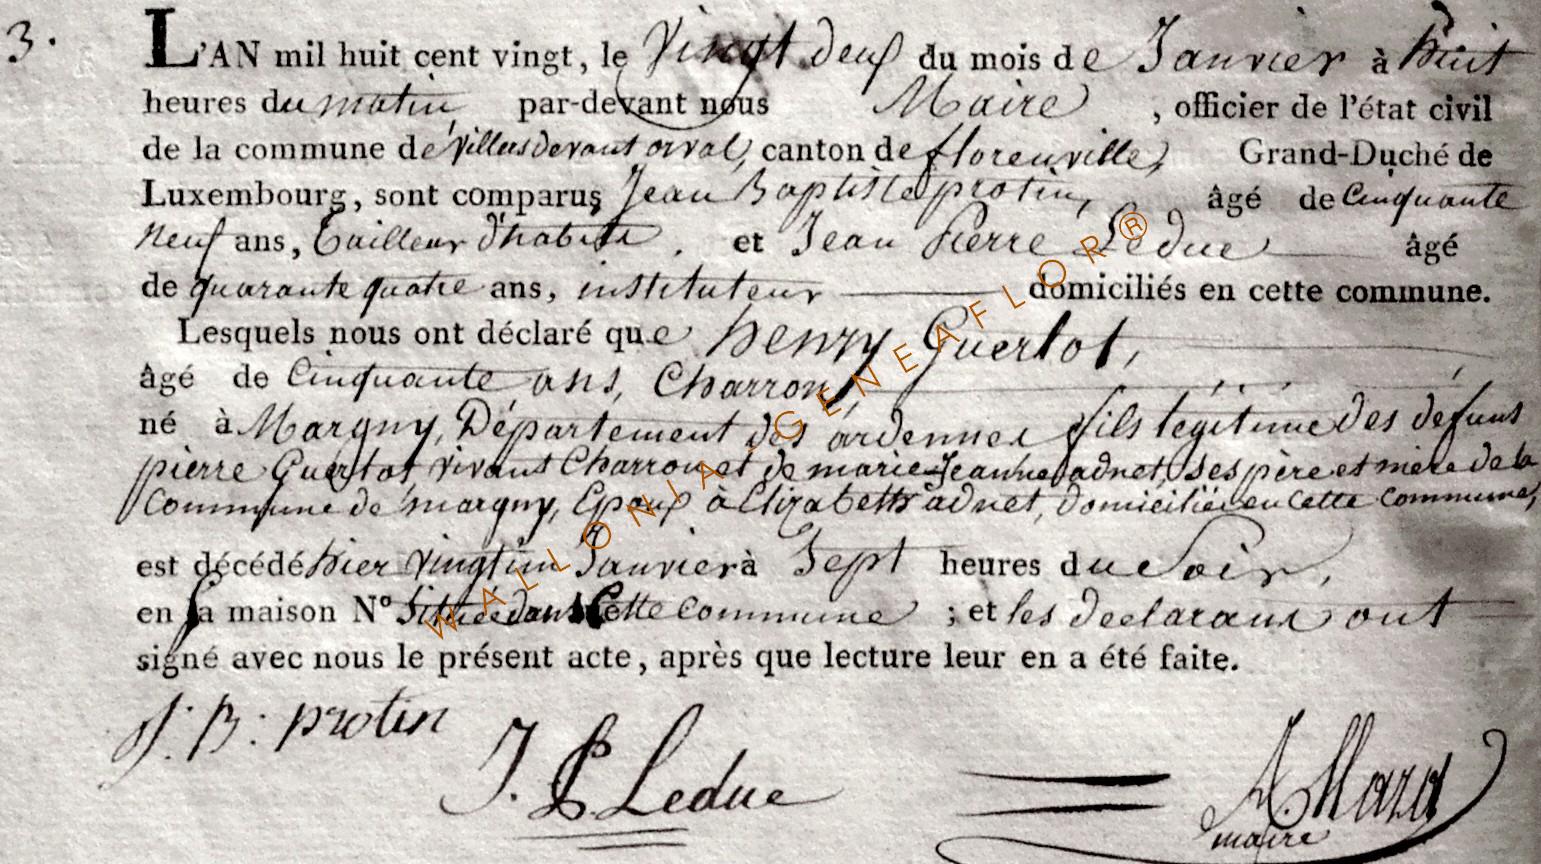 3.
L'AN mil huit cent vingt, le vingt deux du mois de Janvier à huit
heures du matin, par-devant nous Maire, officier de l'état civil
de la commune de villersdevant orval, canton de florenville, Grand-Duché de
Luxembourg, sont comparus Jean Baptiste protin, âgé de Cinquante
neuf ans, tailleur d'habits. et Jean Pierre Leduc âgé
de quarante quatre ans, instituteur domiciliés en cette commune.
Lesquels nous ont déclaré que henry Guerlot,
âgé de Cinquante ans, Charron,
né à Margny, Département des ardennes fils legitime des defunts
pierre Guerlot vivant Charron et de marie-Jeanne adnet, ses père et mère de la
Commune de margny, Epoux à Elizabeth adnet, domicilié en Cette Commune,
est décédé hier vingt un Janvier à Sept heures du Soir,
en sa maison N° située dans Cette Commune ; et les declarans ont
signé avec nous le présent acte, après que lecture leur en a été faite.
J. B: protin
J. P Leduc
maire
WALLONIA GENEAFLOR®